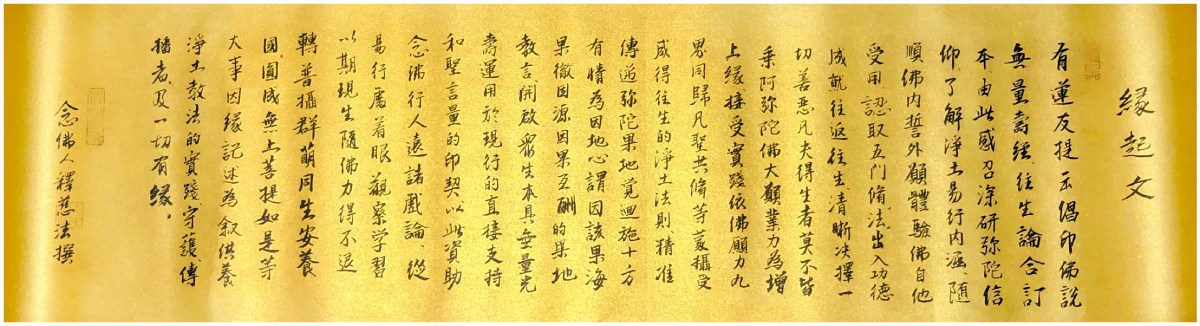 緣起文
有蓮友提示倡印佛說
無量壽經、往生論合訂
本由此感召深研弥陀信
仰、了解淨土易行内涵、随
順佛内誓外願體驗佛自他
受用、認取五門脩法、出入功德
成就往返往生、清晰决擇一
切善惡凡夫得生者莫不皆
乘阿弥陀佛大願業力為增
上緣、接受實踐依佛願力九
界同歸凡聖共脩等蒙攝受
咸得往生的淨土法則精准
傳遞弥陀果地覺迴施十方
有情為因地心謂因該果海
果徹因源因果互酬的果地
教言、開啟眾生本具無量光
壽運用於現行的直接支持
和聖言量的印契、以此資助
念佛行人遠諸戲論、從
易行處着眼觀察学習
以期現生隨佛力得不退
轉普攝群萌同生安養
國、圓成無上菩提如是等
大事因緣記述為叙供養
淨土教法的實踐、守護、傳
播者、及一切有緣。
念佛人釋慧法撰